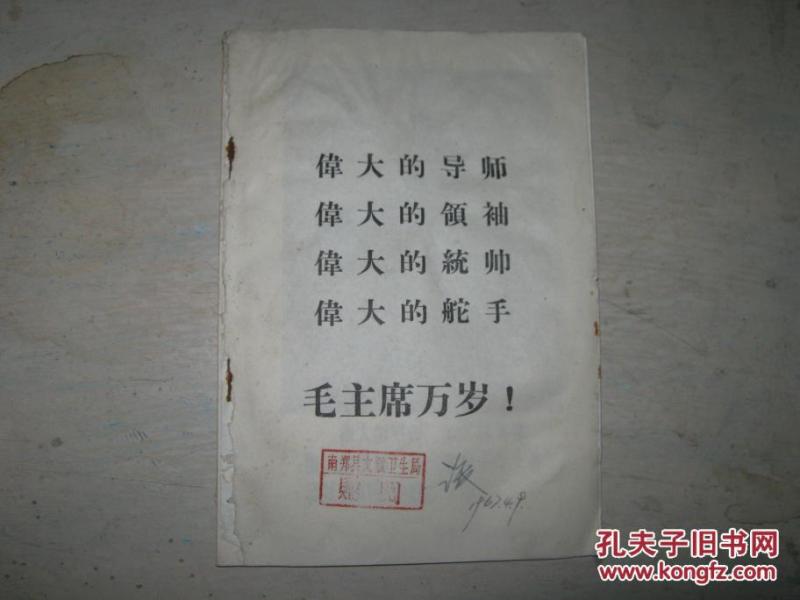 偉大的导师
偉大的領袖
偉大的統帅
偉大的舵手
毛主席万岁！
南郑县文教卫生局
1967.4.9.
孔夫子旧书网
www.kongfz.com